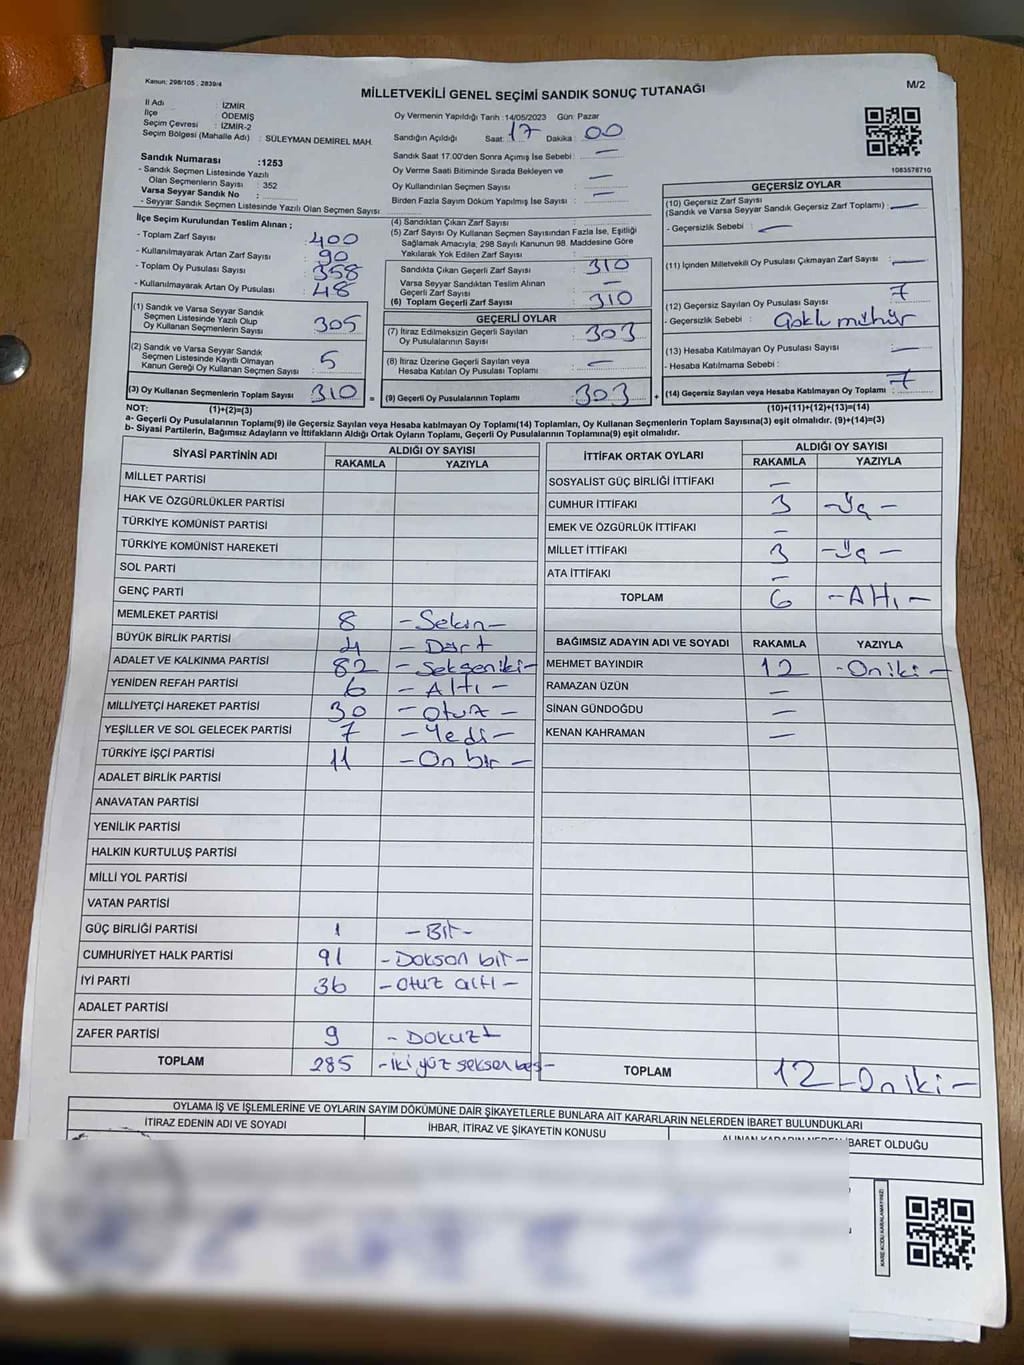 Kanun: 298/105 , 2839/4
MİLLETVEKİLİ GENEL SEÇİMİ SANDIK SONUÇ TUTANAĞI
M/2
İl Adı : İZMİR
İlçe : ÖDEMİŞ
Seçim Çevresi : İZMİR-2
Seçim Bölgesi (Mahalle Adı) : SÜLEYMAN DEMİREL MAH.
Sandık Numarası :1253
- Sandık Seçmen Listesinde Yazılı
Olan Seçmenlerin Sayısı : 352
Varsa Seyyar Sandık No :
- Seyyar Sandık Seçmen Listesinde Yazılı Olan Seçmen Sayısı
Oy Vermenin Yapıldığı Tarih :14/05/2023 Gün: Pazar
Sandığın Açıldığı Saat: 17 Dakika : 00
Sandık Saat 17.00'den Sonra Açımış İse Sebebi : —
Oy Verme Saati Bitiminde Sırada Bekleyen ve
Oy Kullandırılan Seçmen Sayısı : —
Birden Fazla Sayım Döküm Yapılmış İse Sayısı : —
1083578710
İlçe Seçim Kurulundan Teslim Alınan ;
- Toplam Zarf Sayısı : 400
- Kullanılmayarak Artan Zarf Sayısı : 90
- Toplam Oy Pusulası Sayısı : 358
- Kullanılmayarak Artan Oy Pusulası : 48
(1) Sandık ve Varsa Seyyar Sandık
Seçmen Listesinde Yazılı Olup
Oy Kullanan Seçmenlerin Sayısı : 305
(2) Sandık ve Varsa Seyyar Sandık
Seçmen Listesinde Kayıtlı Olmayan
Kanun Gereği Oy Kullanan Seçmen Sayısı : 5
(3) Oy Kullanan Seçmenlerin Toplam Sayısı : 310
(4) Sandıktan Çıkan Zarf Sayısı :
(5) Zarf Sayısı Oy Kullanan Seçmen Sayısından Fazla İse, Eşitliği
Sağlamak Amacıyla, 298 Sayılı Kanunun 98. Maddesine Göre
Yakılarak Yok Edilen Zarf Sayısı :
Sandıkta Çıkan Geçerli Zarf Sayısı : 310
Varsa Seyyar Sandıktan Teslim Alınan
Geçerli Zarf Sayısı : —
(6) Toplam Geçerli Zarf Sayısı : 310
GEÇERLİ OYLAR
(7) İtiraz Edilmeksizin Geçerli Sayılan
Oy Pusulalarının Sayısı : 303
(8) İtiraz Üzerine Geçerli Sayılan veya
Hesaba Katılan Oy Pusulaları Toplamı : —
= (9) Geçerli Oy Pusulalarının Toplamı : 303
GEÇERSİZ OYLAR
(10) Geçersiz Zarf Sayısı
(Sandık ve Varsa Seyyar Sandık Geçersiz Zarf Toplamı) : —
- Geçersizlik Sebebi : —
(11) İçinden Milletvekili Oy Pusulası Çıkmayan Zarf Sayısı : —
(12) Geçersiz Sayılan Oy Pusulası Sayısı : 7
- Geçersizlik Sebebi : Çoklu mühür
(13) Hesaba Katılmayan Oy Pusulası Sayısı : —
- Hesaba Katılmama Sebebi :
+ (14) Geçersiz Sayılan veya Hesaba Katılmayan Oy Toplamı : 7
NOT: (1)+(2)=(3) (10)+(11)+(12)+(13)=(14)
a- Geçerli Oy Pusulalarının Toplamı(9) ile Geçersiz Sayılan veya Hesaba katılmayan Oy Toplamı(14) Toplamları, Oy Kullanan Seçmenlerin Toplam Sayısına(3) eşit olmalıdır. (9)+(14)=(3)
b- Siyasi Partilerin, Bağımsız Adayların ve İttifakların Aldığı Ortak Oyların Toplamı, Geçerli Oy Pusulalarının Toplamına(9) eşit olmalıdır.
SİYASİ PARTİNİN ADI ALDIĞI OY SAYISI
RAKAMLA YAZIYLA
MİLLET PARTİSİ
HAK VE ÖZGÜRLÜKLER PARTİSİ
TÜRKİYE KOMÜNİST PARTİSİ
TÜRKİYE KOMÜNİST HAREKETİ
SOL PARTİ
GENÇ PARTİ
MEMLEKET PARTİSİ 8 — Sekiz —
BÜYÜK BİRLİK PARTİSİ 4 — Dört
ADALET VE KALKINMA PARTİSİ 82 — Seksen iki —
YENİDEN REFAH PARTİSİ 6 — Altı —
MİLLİYETÇİ HAREKET PARTİSİ 30 — Otuz —
YEŞİLLER VE SOL GELECEK PARTİSİ 7 — Yedi —
TÜRKİYE İŞÇİ PARTİSİ 11 — On bir —
ADALET BİRLİK PARTİSİ
ANAVATAN PARTİSİ
YENİLİK PARTİSİ
HALKIN KURTULUŞ PARTİSİ
MİLLİ YOL PARTİSİ
VATAN PARTİSİ
GÜÇ BİRLİĞİ PARTİSİ 1 — Bir —
CUMHURİYET HALK PARTİSİ 91 — Doksan bir —
İYİ PARTİ 36 — otuz altı —
ADALET PARTİSİ
ZAFER PARTİSİ 9 — DOKUZ —
TOPLAM 285 — iki yüz seksen beş —
İTTİFAK ORTAK OYLARI ALDIĞI OY SAYISI
RAKAMLA YAZIYLA
SOSYALİST GÜÇ BİRLİĞİ İTTİFAKI —
CUMHUR İTTİFAKI 3 — Üç —
EMEK VE ÖZGÜRLÜK İTTİFAKI —
MİLLET İTTİFAKI 3 — Üç —
ATA İTTİFAKI —
TOPLAM 6 — Altı —
BAĞIMSIZ ADAYIN ADI VE SOYADI RAKAMLA YAZIYLA
MEHMET BAYINDIR 12 — On iki —
RAMAZAN ÜZÜN —
SİNAN GÜNDOĞDU —
KENAN KAHRAMAN —
TOPLAM 12 — On iki —
OYLAMA İŞ VE İŞLEMLERİNE VE OYLARIN SAYIM DÖKÜMÜNE DAİR ŞİKAYETLERLE BUNLARA AİT KARARLARIN NELERDEN İBARET BULUNDUKLARI
İTİRAZ EDENİN ADI VE SOYADI İHBAR, İTİRAZ VE ŞİKAYETİN KONUSU ALINAN KARARIN NEDEN İBARET OLDUĞU
KARE KODU KARALAMAYINIZ!